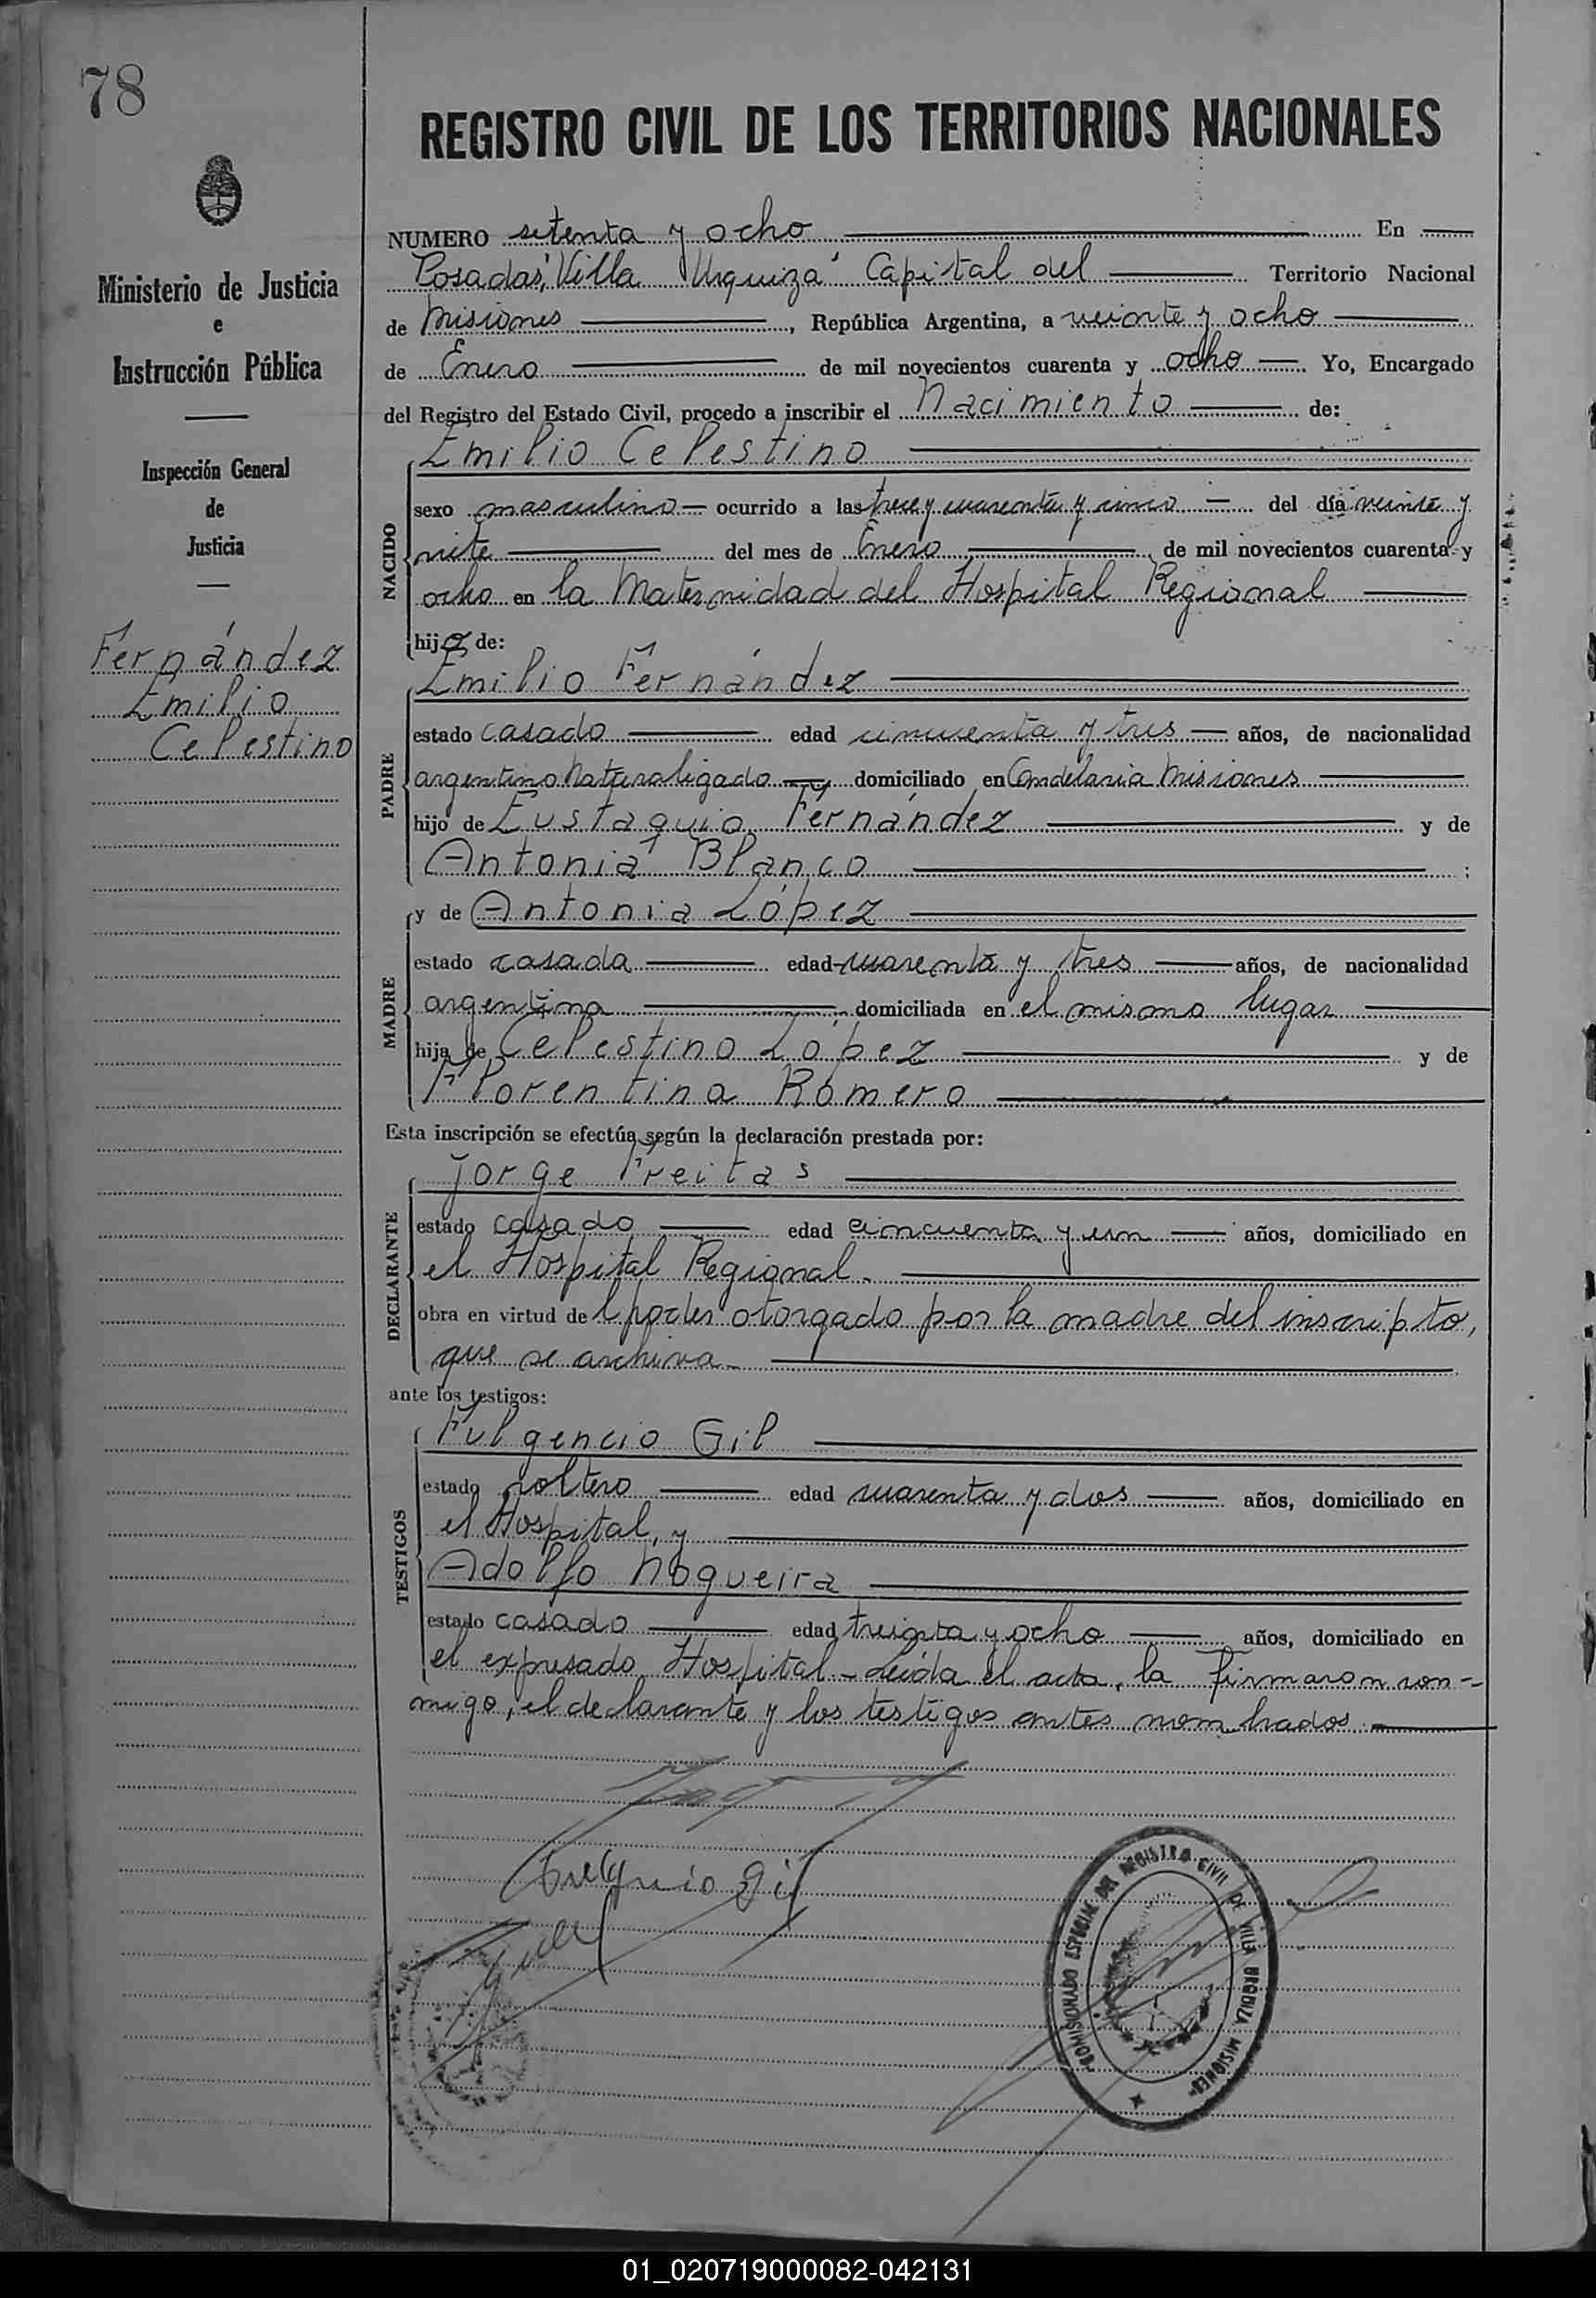 78
REGISTRO CIVIL DE LOS TERRITORIOS NACIONALES
Ministerio de Justicia
e
Instrucción Pública
Inspección General
de
Justicia
Fernández
Emilio
Celestino
NUMERO setenta y ocho En
Posadas, "Villa Urquiza" Capital del Territorio Nacional
de Misiones, República Argentina, a veinte y ocho
de Enero de mil novecientos cuarenta y ocho. Yo, Encargado
del Registro del Estado Civil, procedo a inscribir el Nacimiento de:
Emilio Celestino
NACIDO
sexo masculino ocurrido a las trece y cuarenta y cinco del día veinte y
siete del mes de Enero de mil novecientos cuarenta y
ocho en la Maternidad del Hospital Regional
hijo de:
Emilio Fernández
PADRE
estado casado edad cincuenta y tres años, de nacionalidad
argentino naturalizado domiciliado en Candelaria Misiones
hijo de Eustaquio Fernández y de
Antonia Blanco;
y de Antonia López
MADRE
estado casada edad cuarenta y tres años, de nacionalidad
argentina domiciliada en el mismo lugar
hija de Celestino López y de
Florentina Romero
Esta inscripción se efectúa según la declaración prestada por:
Jorge Freitas
DECLARANTE
estado casado edad cincuenta y un años, domiciliado en
el Hospital Regional.
obra en virtud del poder otorgado por la madre del inscripto,
que se archiva.
ante los testigos:
Fulgencio Gil
TESTIGOS
estado soltero edad cuarenta y dos años, domiciliado en
el Hospital, y
Adolfo Nogueira
estado casado edad treinta y ocho años, domiciliado en
el expresado Hospital - Leída el acta, la firmaron con-
migo, el declarante y los testigos antes nombrados.
Fulgencio Gil
COMISIONADO ESPECIAL DEL REGISTRO CIVIL DE VILLA URQUIZA MISIONES
01_020719000082-042131